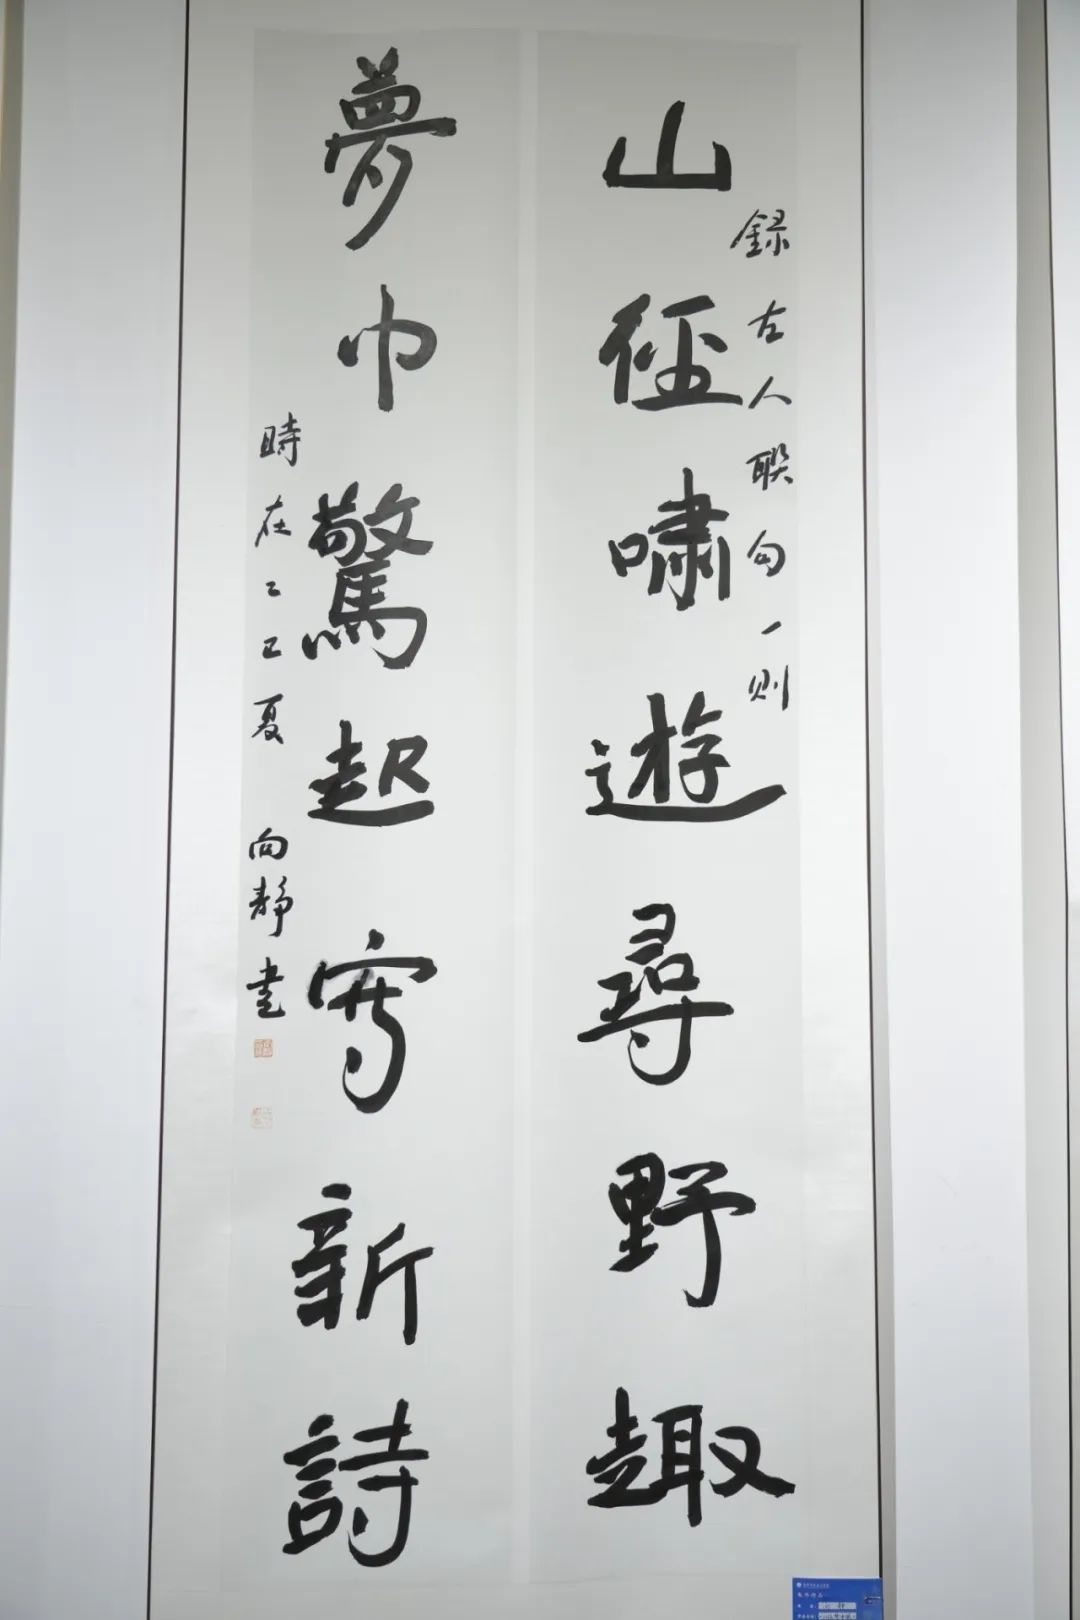 録古人聯句一則
山徑嘯遊尋野趣
夢中驚起寫新詩
時在乙巳夏 向靜書